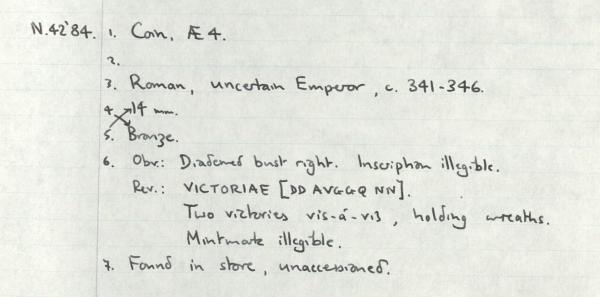 N.42'84. 1. Coin, Æ 4.
2.
3. Roman, uncertain Emperor, c. 341-346.
4. 14 mm.
5. Bronze.
6. Obv.: Diademed bust right. Inscription illegible.
Rev.: VICTORIAE [DD AVGGQ NN].
Two victories vis-á-vis, holding wreaths.
Mintmark illegible.
7. Found in store, unaccessioned.